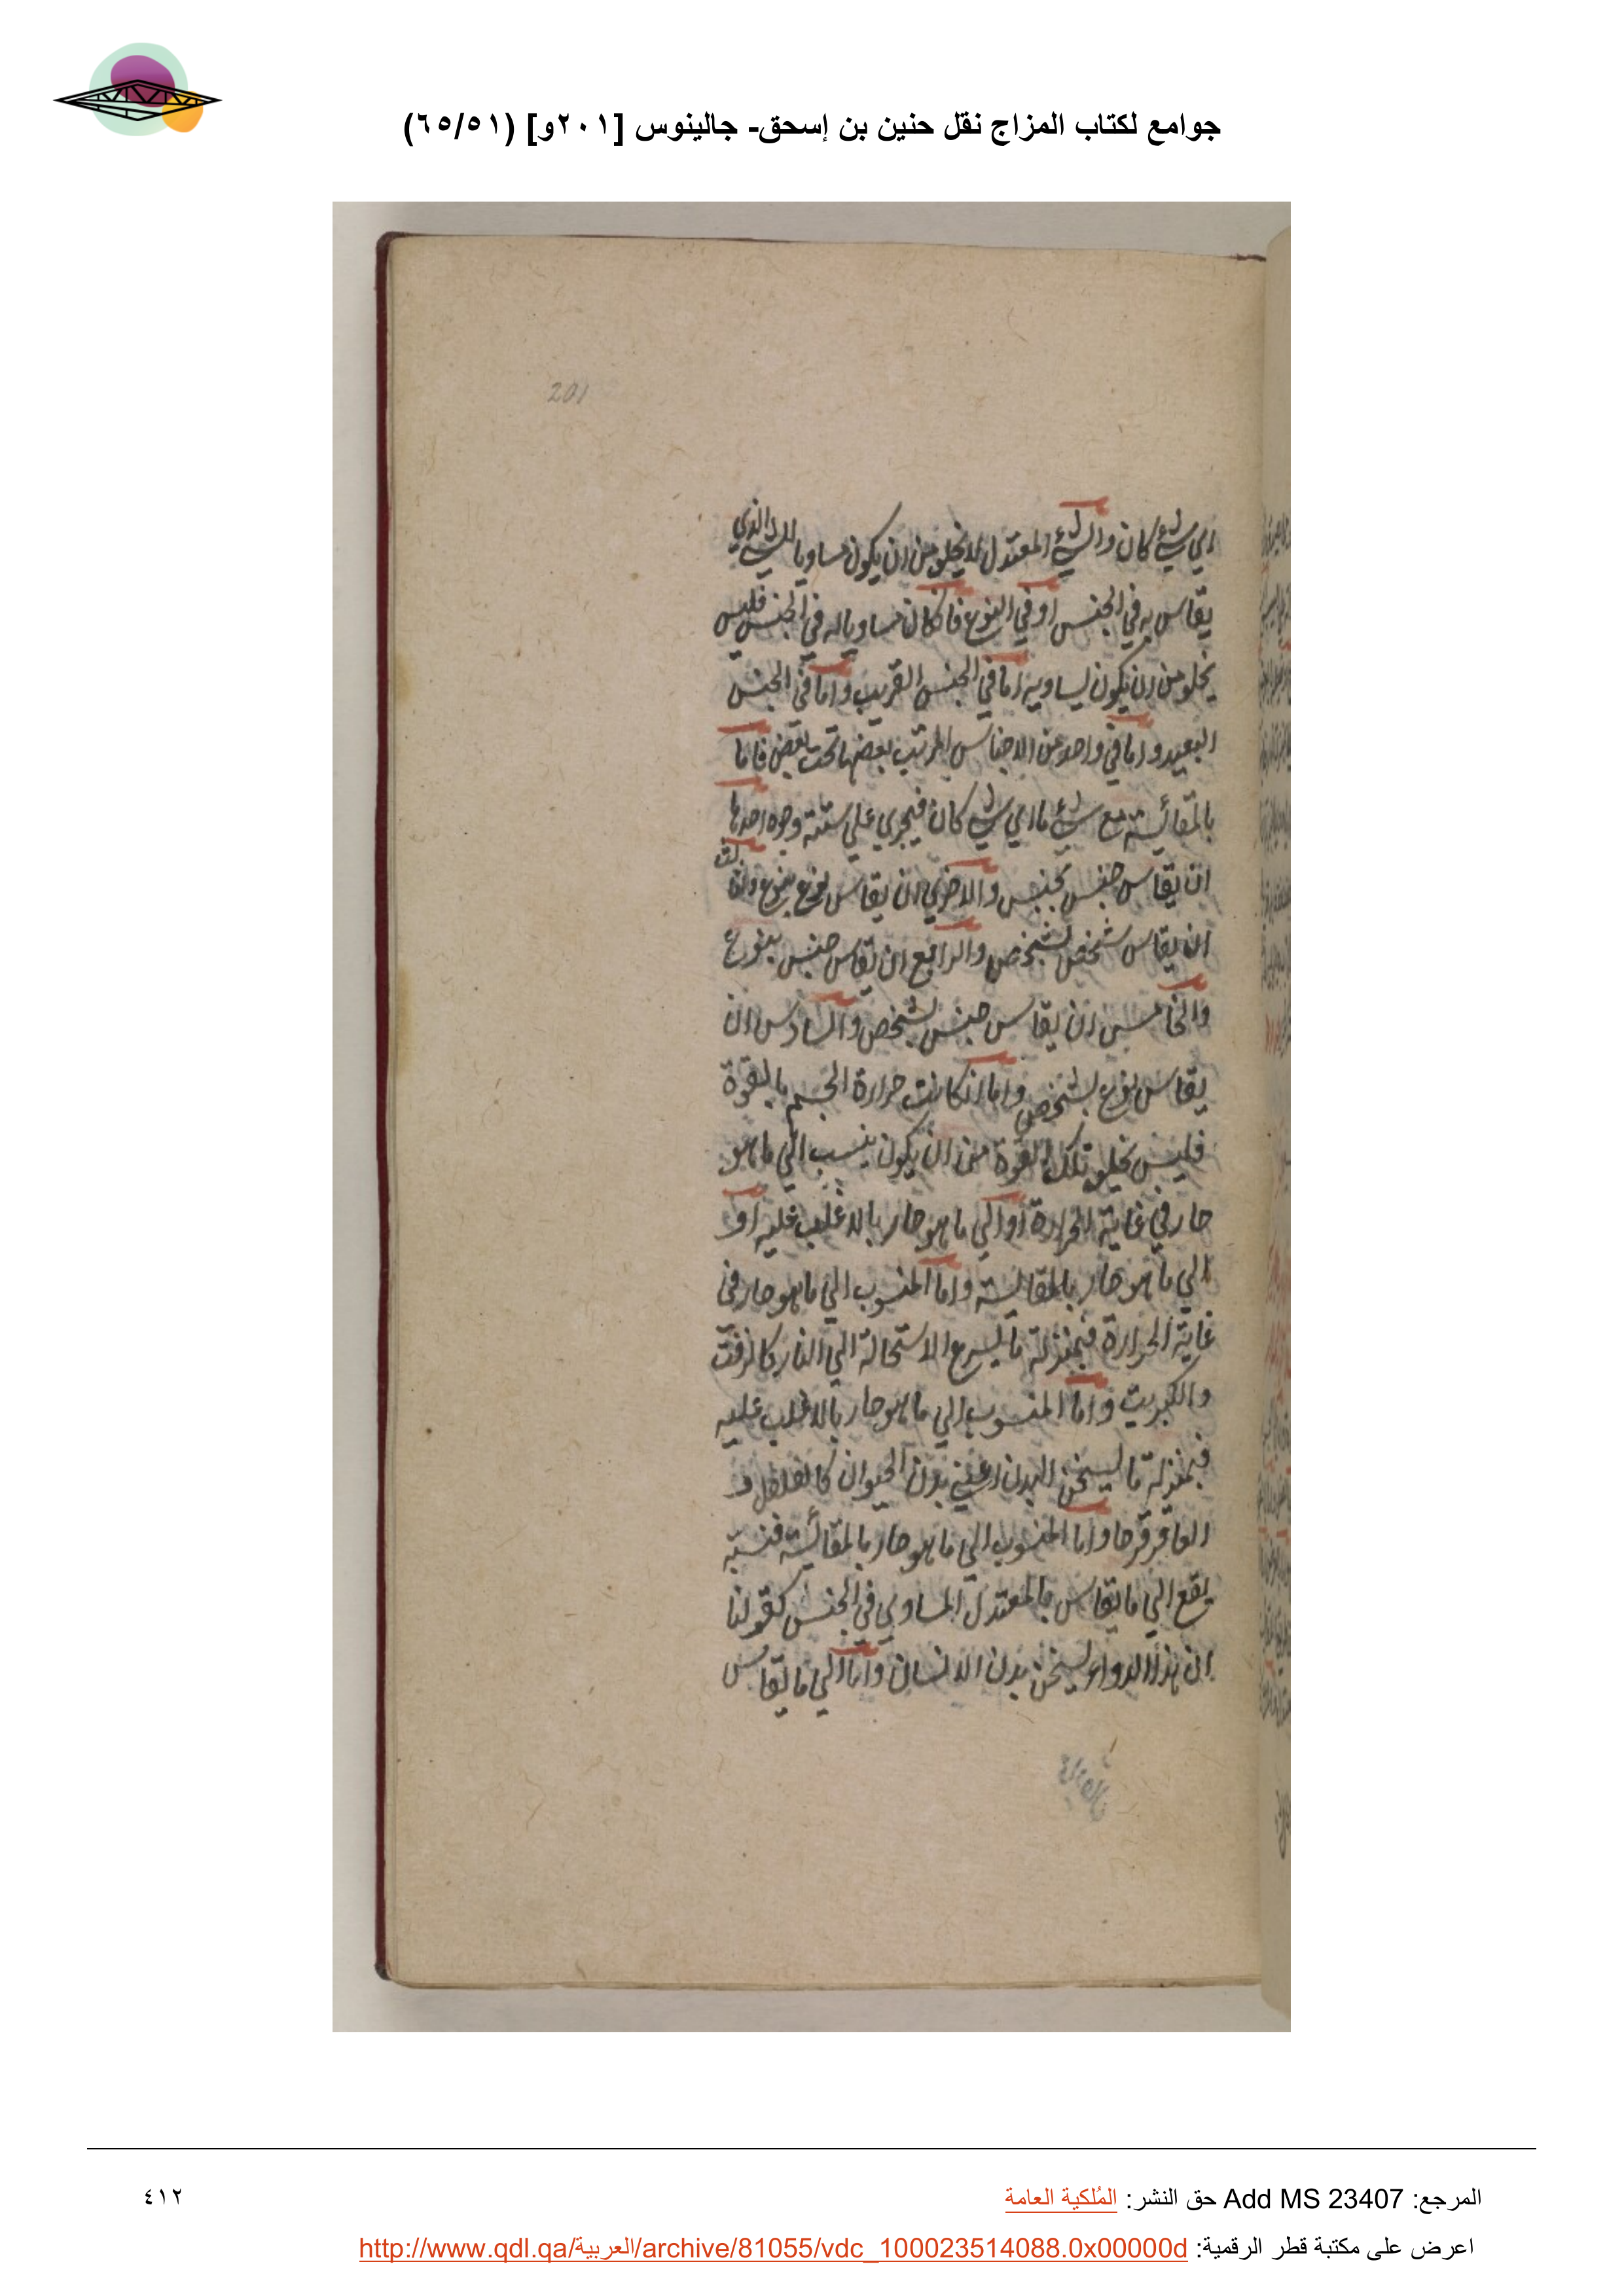 جوامع لكتاب المزاج نقل حنين بن إسحق- جالينوس [٢٠١و] (٦٥/٥١)
201
اي شيء كان والشيء المعتدل لا يخلو من ان يكون مساويا للشيء الذي
يقاس به في الجنس او في النوع فاذا كان مساويا له في الجنس فليس
يخلو من ان يكون يساويه اما في الجنس القريب واما في الجنس
البعيد واما في واحد من الاجناس المرتب بعضها تحت بعض فاما
بالمقائسة مع شيء ما اي شيء كان فيجري علي ستة وجوه احدها
ان يقاس جنس بجنس والاخري ان يقاس نوع بنوع والثالث
ان يقاس شخص بشخص والرابع ان يقاس جنس بنوع
والخامس ان يقاس جنس بشخص والسادس ان
يقاس نوع بشخص واما ان كانت حرارة الجسم بالقوة
فليس يخلو تلك القوة من ان يكون ينسب الي ما هو
حار في غاية الحرارة او الي ما هو حار بالاغلب عليه او
الي ما هو حار بالمقائسة واما المنسوب الي ما هو حار في
غاية الحرارة فبمنزلة ما يسرع الاستحالة الي النار كالزفت
والكبريت واما المنسوب الي ما هو حار بالاغلب عليه
فبمنزلة ما يسخن البدن اعني بدن الحيوان كالفلفل و
العاقرقرحا واما المنسوب الي ما هو حار بالمقائسة فنسبته
يقع الي ما يقاس بالمعتدل المساوي في الجنس كقولنا
ان هذا الدواء يسخن بدن الانسان واما الي ما يقاس
المرجع: Add MS 23407 حق النشر: المُلكية العامة
٤١٢
اعرض على مكتبة قطر الرقمية: http://www.qdl.qa/العربية/archive/81055/vdc_100023514088.0x00000d